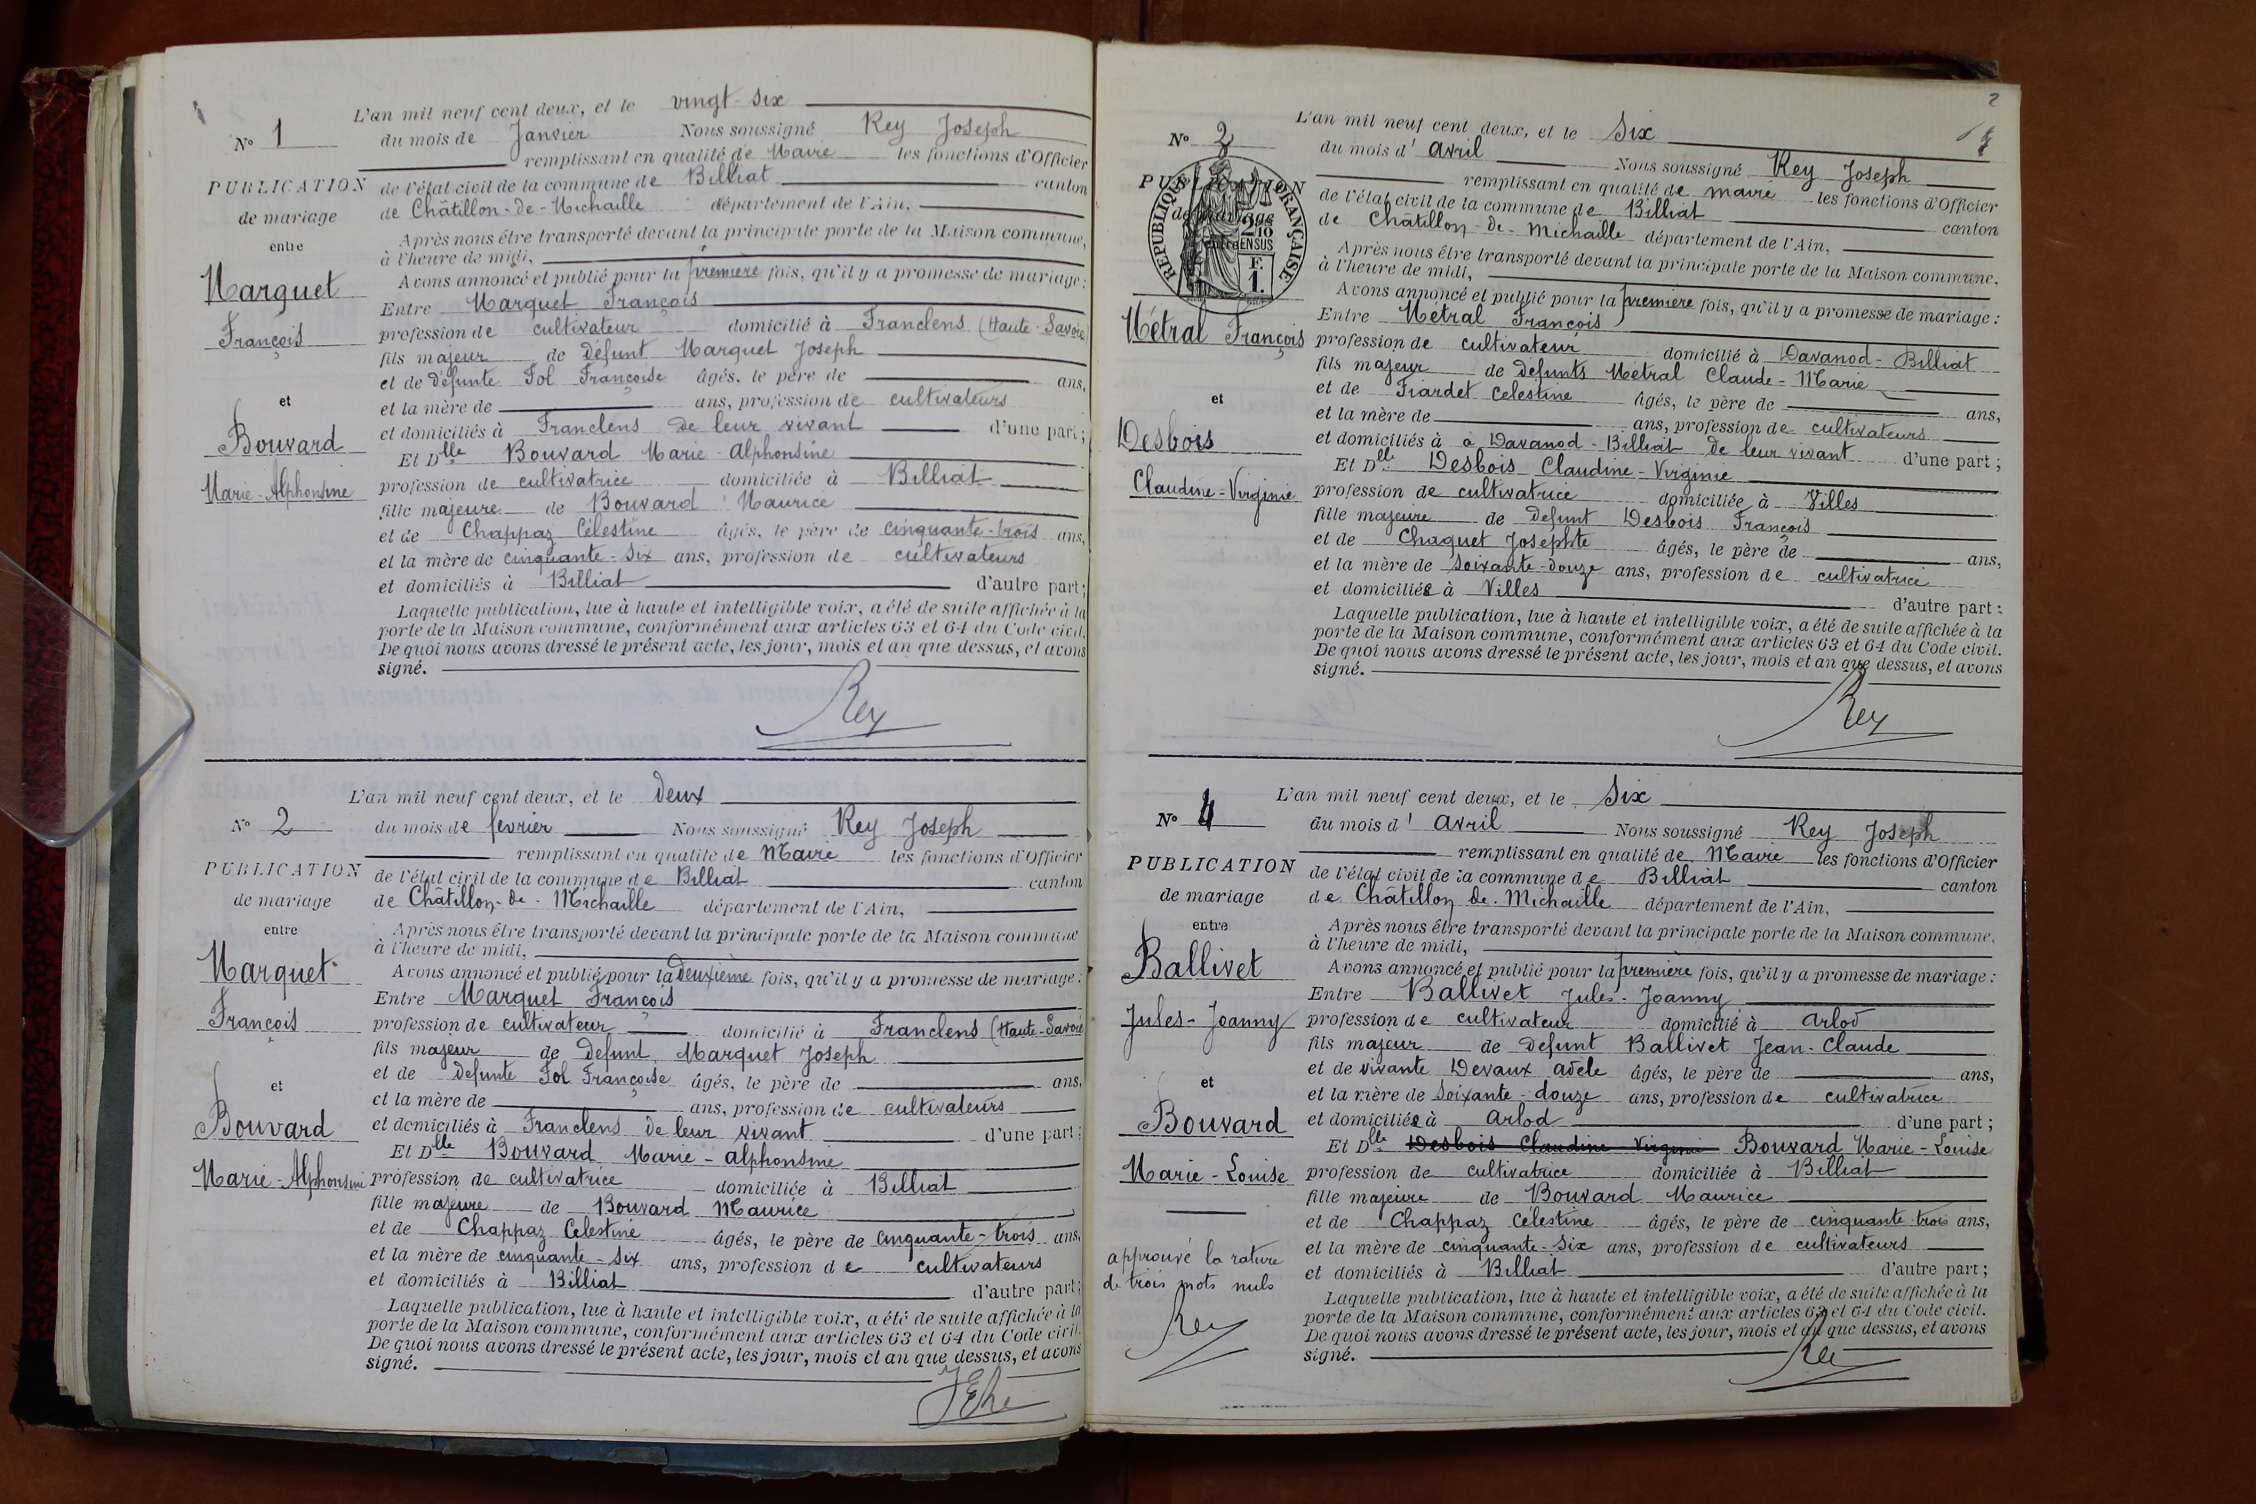 L'an mil neuf cent deux, et le vingt-six
N° 1
du mois de Janvier Nous soussigné Rey Joseph
remplissant en qualité de Maire les fonctions d'Officier
PUBLICATION
de l'état civil de la commune de Billiat canton
de mariage
de Châtillon-de-Michaille département de l'Ain,
entre
Après nous être transporté devant la principale porte de la Maison commune,
à l'heure de midi,
Avons annoncé et publié pour la première fois, qu'il y a promesse de mariage:
Marquet
Entre Marquet François
François
profession de cultivateur domicilié à Franclens (Haute-Savoie)
fils majeur de Défunt Marquet Joseph
et de défunte Fol Françoise âgés, le père de ans,
et
et la mère de ans, profession de cultivateurs
Bouvard
et domiciliés à Franclens de leur vivant d'une part;
Et Dlle Bouvard Marie-Alphonsine
Marie-Alphonsine
profession de cultivatrice domiciliée à Billiat
fille majeure de Bouvard Maurice
et de Chappaz Célestine âgés, le père de cinquante-trois ans,
et la mère de cinquante-six ans, profession de cultivateurs
et domiciliés à Billiat d'autre part;
Laquelle publication, lue à haute et intelligible voix, a été de suite affichée à la
porte de la Maison commune, conformément aux articles 63 et 64 du Code civil.
De quoi nous avons dressé le présent acte, les jour, mois et an que dessus, et avons
signé.
Rey
L'an mil neuf cent deux, et le deux
N° 2
du mois de février Nous soussigné Rey Joseph
remplissant en qualité de Maire les fonctions d'Officier
PUBLICATION
de l'état civil de la commune de Billiat canton
de mariage
de Châtillon-de-Michaille département de l'Ain,
entre
Après nous être transporté devant la principale porte de la Maison commune
à l'heure de midi,
Marquet
Avons annoncé et publié pour la deuxième fois, qu'il y a promesse de mariage:
Entre Marquet François
François
profession de cultivateur domicilié à Franclens (Haute-Savoie
fils majeur de défunt Marquet Joseph
et
et de défunte Fol Françoise âgés, le père de ans,
et la mère de ans, profession de cultivateurs
Bouvard
et domiciliés à Franclens de leur vivant d'une part;
Et Dlle Bouvard Marie-alphonsine
Marie-Alphonsine
profession de cultivatrice domiciliée à Billiat
fille majeure de Bouvard Maurice
et de Chappaz Celestine âgés, le père de cinquante-trois ans,
et la mère de cinquante-six ans, profession de cultivateurs
et domiciliés à Billiat d'autre part;
Laquelle publication, lue à haute et intelligible voix, a été de suite affichée à la
porte de la Maison commune, conformément aux articles 63 et 64 du Code civil.
De quoi nous avons dressé le présent acte, les jour, mois et an que dessus, et avons
signé.
2
L'an mil neuf cent deux, et le Six
N°
du mois d'avril Nous soussigné Rey Joseph
remplissant en qualité de maire les fonctions d'Officier
PUBLICATION
de l'état civil de la commune de Billiat canton
de mariage
de Châtillon-de-Michaille département de l'Ain,
entre
RÉPUBLIQUE FRANÇAISE
2/10 EN SUS
F. 1.
Après nous être transporté devant la principale porte de la Maison commune.
à l'heure de midi,
Avons annoncé et publié pour la première fois, qu'il y a promesse de mariage:
Métral François
Entre Métral François
profession de cultivateur domicilié à Davanod-Billiat
fils majeur de défunts Métral Claude-Marie
et
et de Fiardet Celestine âgés, le père de ans,
et la mère de ans, profession de cultivateurs
Desbois
et domiciliés à à Davanod-Billiat de leur vivant d'une part;
Et Dlle Desbois Claudine-Virginie
Claudine-Virginie
profession de cultivatrice domiciliée à Villes
fille majeure de défunt Desbois François
et de Chaquet Josephte âgés, le père de ans,
et la mère de soixante-douze ans, profession de cultivatrice
et domiciliée à Villes d'autre part:
Laquelle publication, lue à haute et intelligible voix, a été de suite affichée à la
porte de la Maison commune, conformément aux articles 63 et 64 du Code civil.
De quoi nous avons dressé le présent acte, les jour, mois et an que dessus, et avons
signé.
Rey
L'an mil neuf cent deux, et le Six
N° 4
du mois d'avril Nous soussigné Rey Joseph
remplissant en qualité de Maire les fonctions d'Officier
PUBLICATION
de l'état civil de la commune de Billiat canton
de mariage
de Châtillon de Michaille département de l'Ain,
entre
Après nous être transporté devant la principale porte de la Maison commune.
à l'heure de midi,
Ballivet
Avons annoncé et publié pour la première fois, qu'il y a promesse de mariage:
Entre Ballivet Jules-Joanny
Jules-Joanny
profession de cultivateur domicilié à arlod
fils majeur de défunt Ballivet Jean-Claude
et
et de vivante Devaux adèle âgés, le père de ans,
et la mère de soixante-douze ans, profession de cultivatrice
Bouvard
et domiciliée à arlod d'une part;
Et Dlle Desbois Claudine Virginie Bouvard Marie-Louise
Marie-Louise
profession de cultivatrice domiciliée à Billiat
fille majeure de Bouvard Maurice
et de Chappaz Célestine âgés, le père de cinquante trois ans,
et la mère de cinquante-six ans, profession de cultivateurs
approuvé la rature
de trois mots nuls
et domiciliés à Billiat d'autre part;
Laquelle publication, lue à haute et intelligible voix, a été de suite affichée à la
porte de la Maison commune, conformément aux articles 63 et 64 du Code civil.
De quoi nous avons dressé le présent acte, les jour, mois et an que dessus, et avons
signé.
Rey
Rey